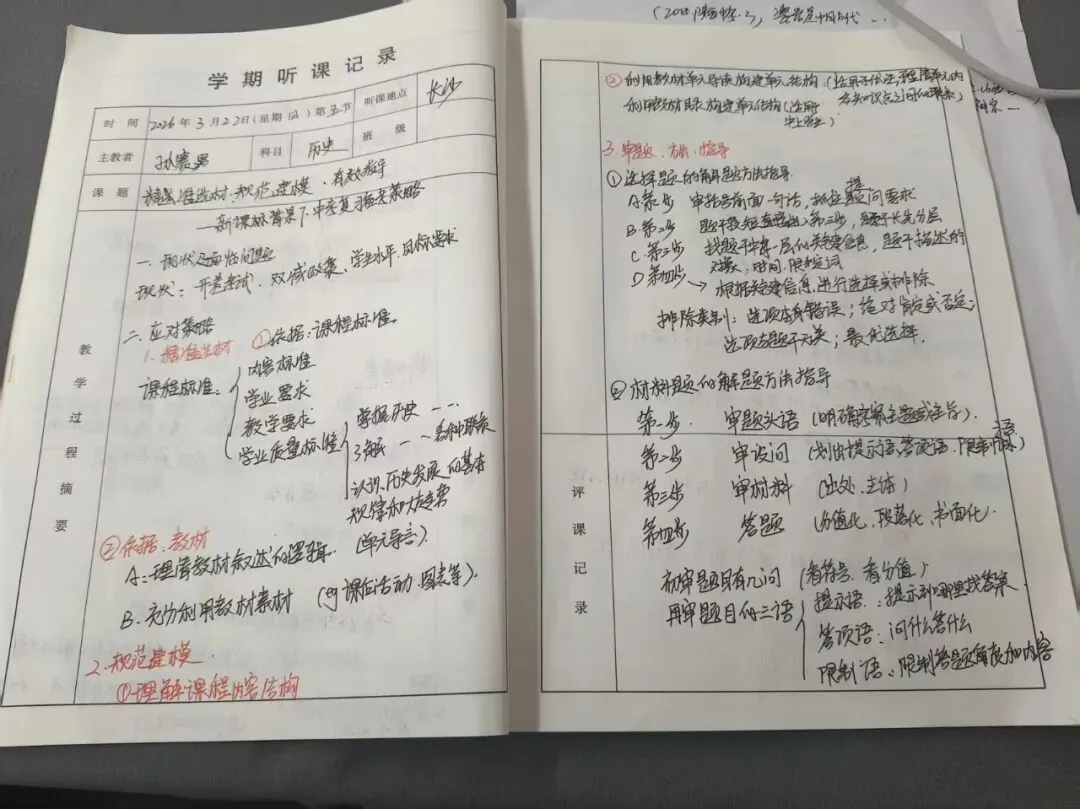 学期听课记录
时间 2026年3月22日(星期日)第五节 听课地点 长沙
主教者 孙赛男 科目 历史 班级
课题 精准选材、规范建模、有效指导
——新课标背景下中考复习备考策略
教学过程摘要
一、现状及面临问题
现状:开卷考试、双减政策、学生水平、目标要求
二、应对策略
1. 精准选材 ①依据:课程标准。
课程标准:
内容标准
学业要求
教学要求
学业质量标准
掌握历史……
了解……各种联系
认识历史发展的基本
规律和大趋势
②依据:教材
A:理清教材叙述的逻辑.(单元导言).
B.充分利用教材素材(eg课后活动、图表等).
2.规范建模
①理解课程内容结构
②利用教材单元导读构建单元结构(适用于依法,理清单元内
各知识点之间的联系)
利用教材目录构建单元结构(适用
中上学生)
3.审题、方法、指导
①选择题的解题方法指导
A.第一步 审括号前面一句话,抓住题问要求
B.第二步 题干较短直接进入第三步,题干长先分层
C.第三步 找题干中每一层的关键信息,题干描述的
对象、时间、限定词
D第四步→根据关键信息,进行选择或排除
排除类别:选项本身错误;绝对肯定或否定;
选项与题干无关;最优选择.
②材料题的解题方法指导
第一步.审题头语(明确考察主题或主旨).
评课记录
第二步 审设问(划出提示语,答项语、限制语)
第三步 审材料(出处、主体)
第四步 答题(分值化、段落化、书面化.
初审题目有几问(看符号、看分值)
再审题目的三语
提示语:提示到哪里找答案
答项语:问什么答什么
限制语:限制答题角度和内容